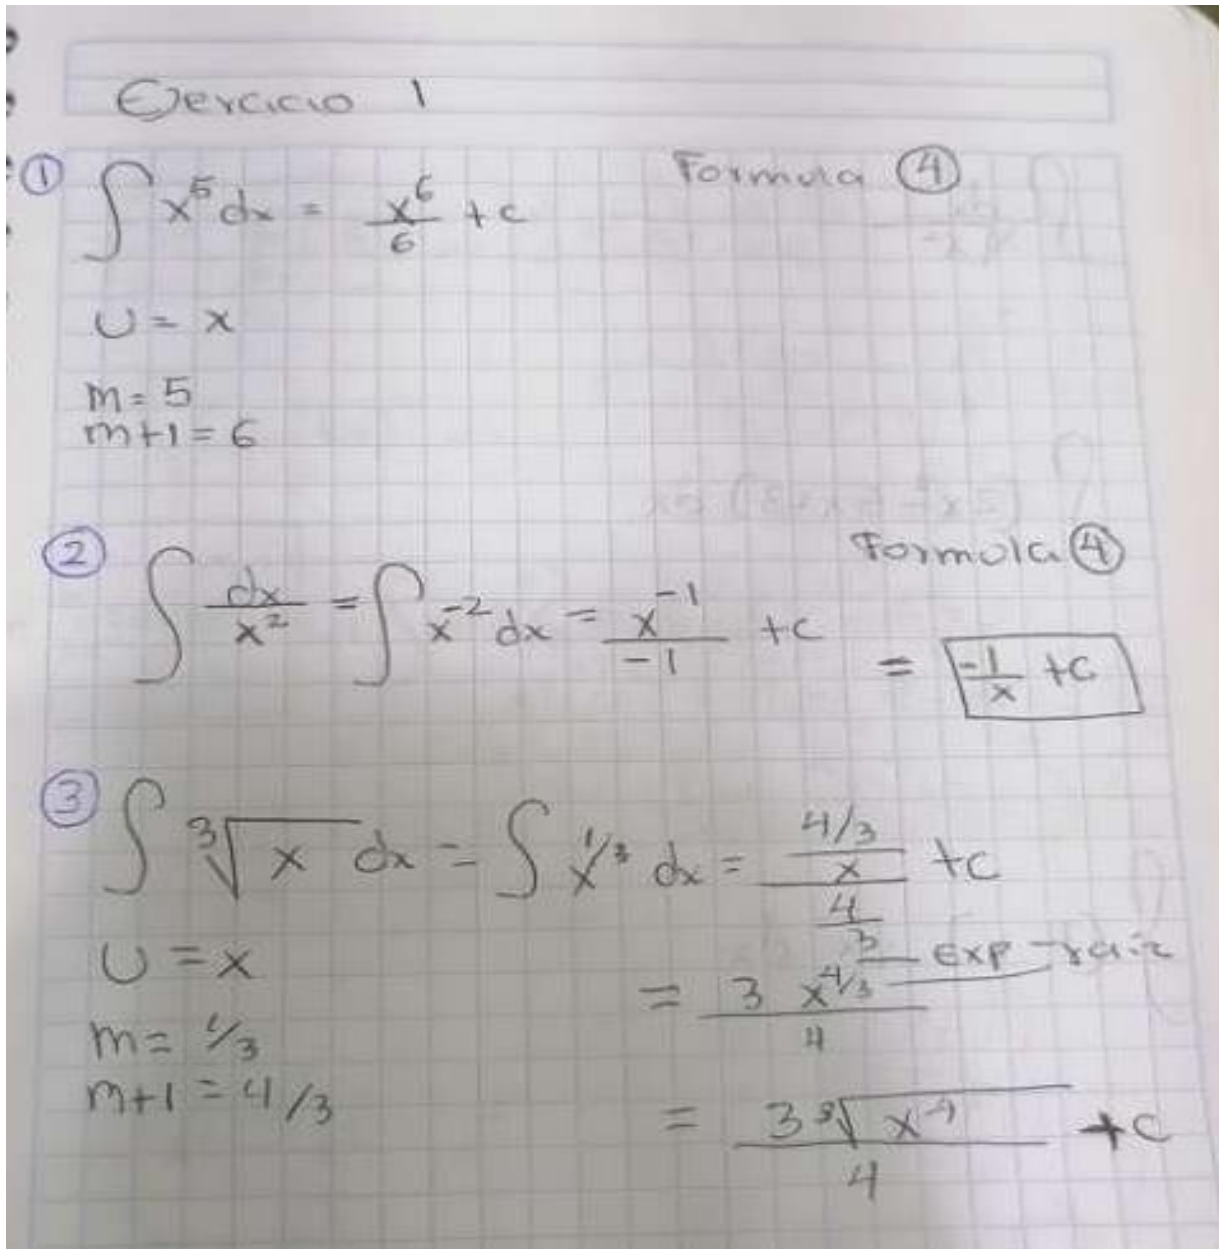 Ejercicio 1
① ∫ x⁵ dx = x⁶/6 + c Formula ④
U = x
m = 5
m+1 = 6
② Formula ④
∫ dx/x² = ∫ x⁻² dx = x⁻¹/-1 + c = -1/x + c
③ ∫ ∛x dx = ∫ x^1/3 dx = x^4/3 / 4/3 + c
U = x
= 3 x^4/3 / 4 Exp - raiz
m = 1/3
m+1 = 4/3
= 3 ∛x⁴ / 4 + c